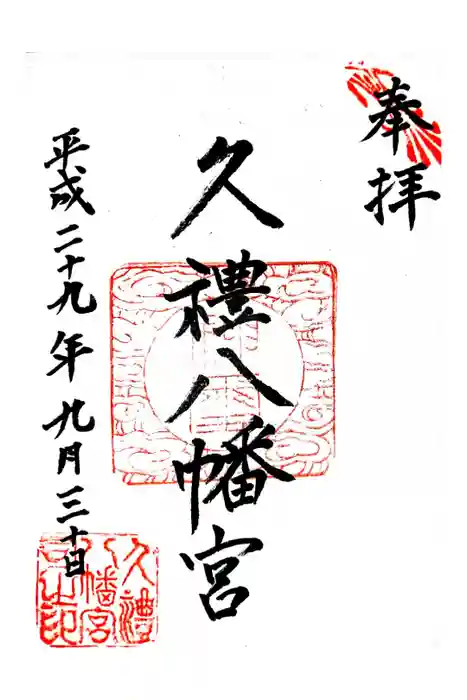 奉拝
久禮八幡宮
平成二十九年九月三十日
久禮
八幡宮